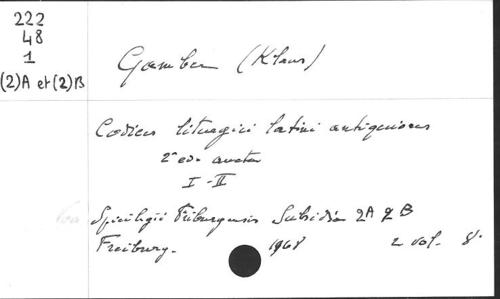 222
48
1
(2)A et (2)B
Gamber (Klaus)
Codices liturgici latini antiquiores
2ª ed. aucta
I-II
Spicilegii Friburgensis Subsidia 2A & B
Freiburg. 1968 2 vol. 8º